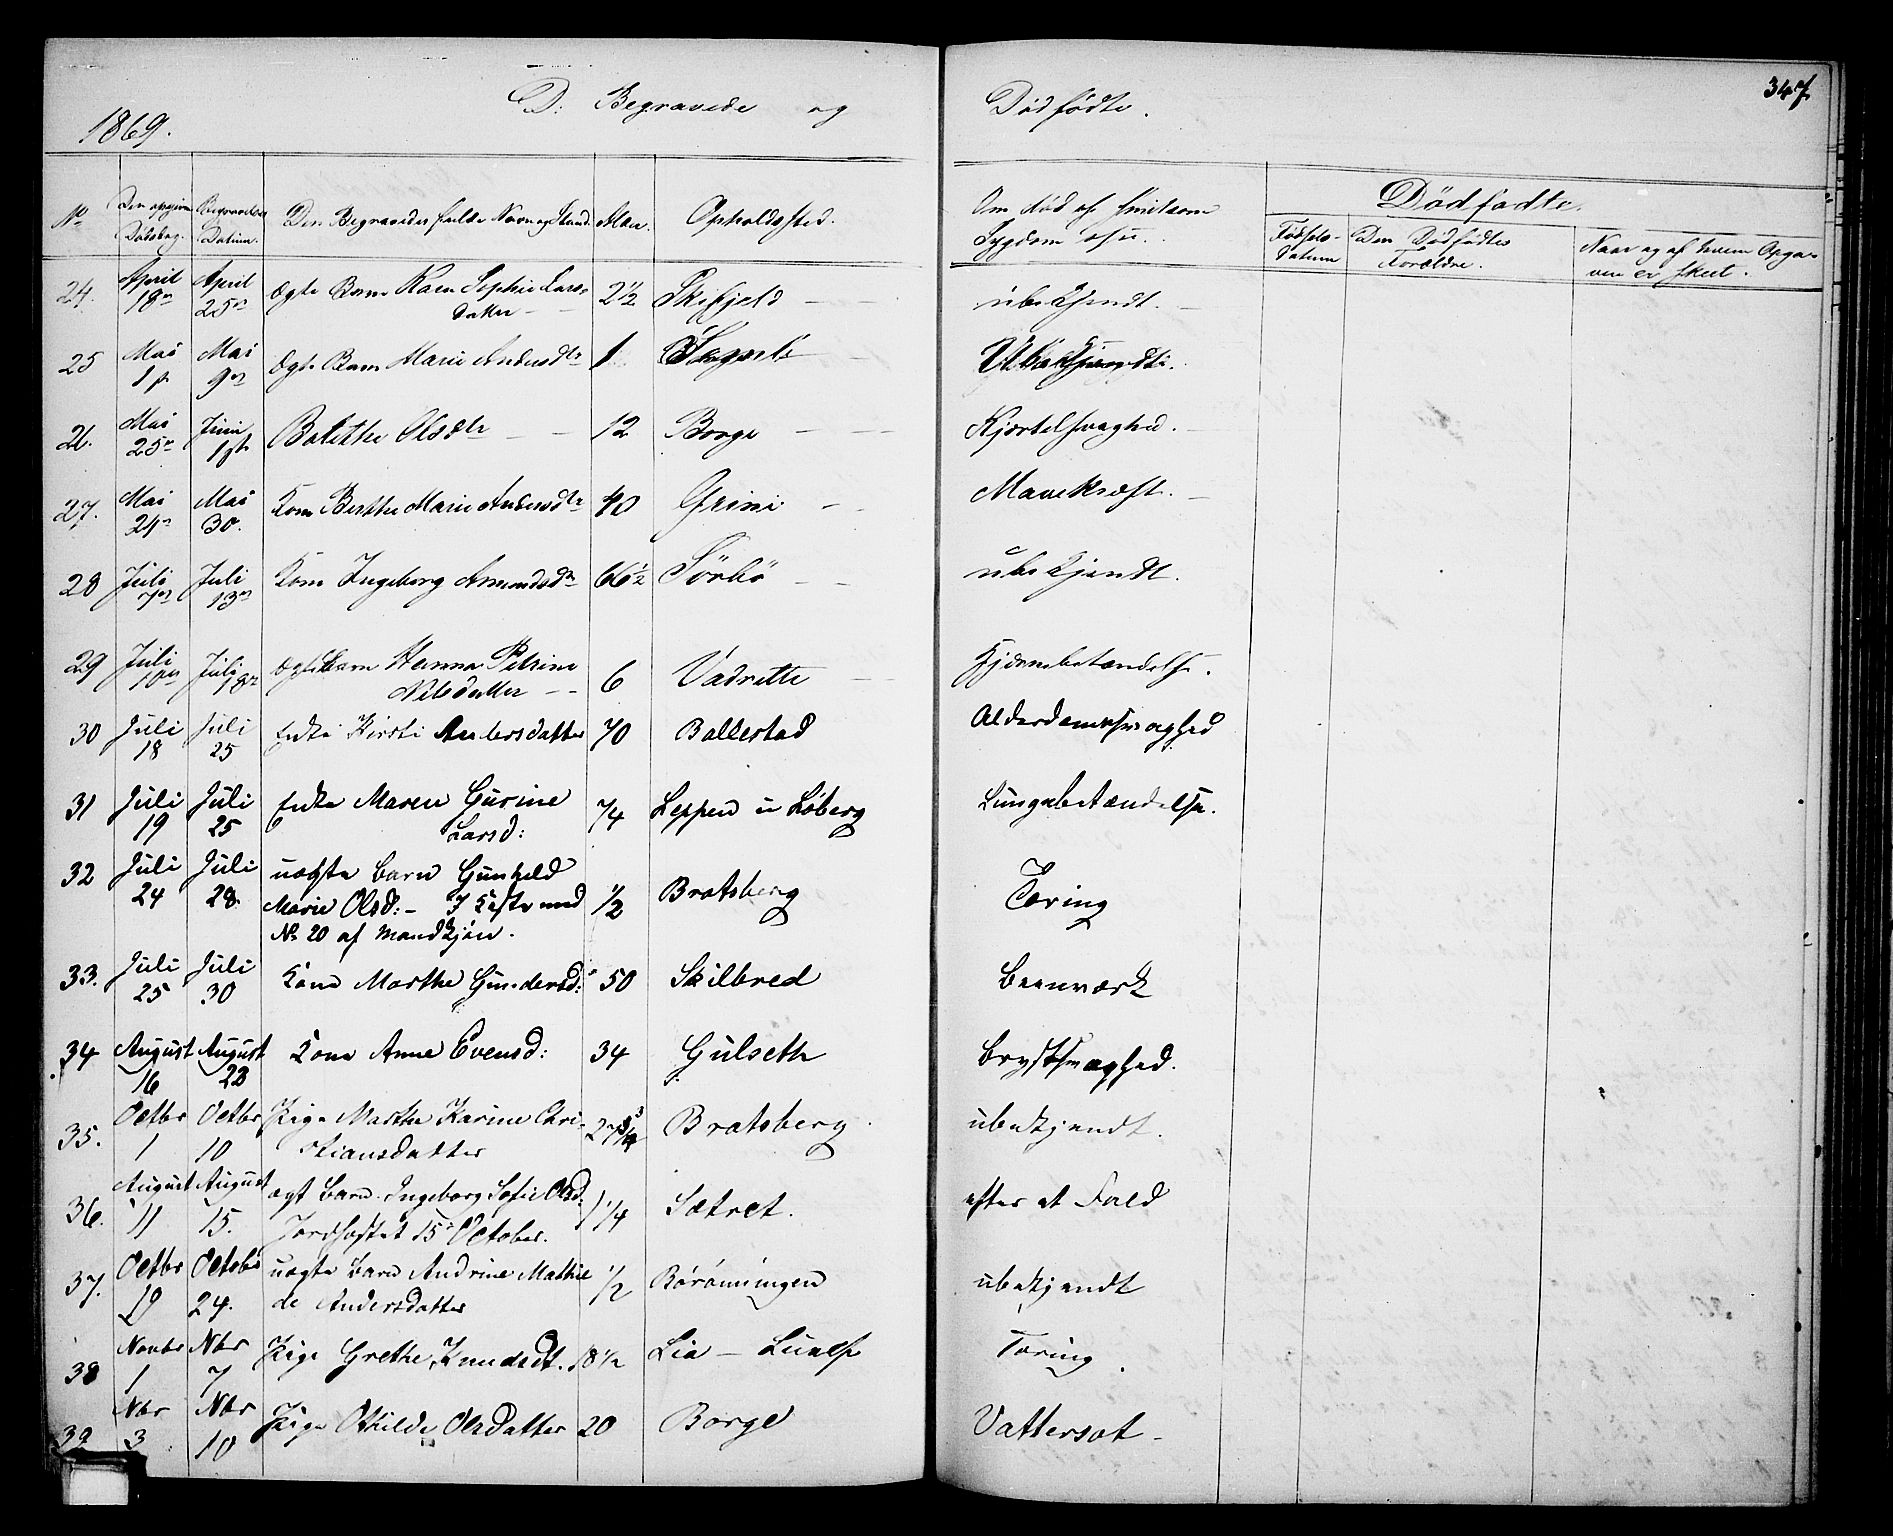 347
1869.
D: Begravede og Dødfødte.
No Den opgivne Dødsdag. Begravelses Datum. Den Begravedes fulde Navn og Stand. Alder. Opholdssted. Om død af smitsom Sygdom osv.
Dødfødte.
Fødsels-Datum Den Dødfødtes Forældre. Naar og af hvem Opga-
ven er skeet.
24. April 18 April 25 ægte Barn Karen Sophie Lars- 2½ Skifjeld ubekjendt.
datter
25 Mai 1 Mai 9 ægte Barn Maria Andersdtr 1 Ubekjendt.
26. Mai 25 Juni 1 Olsdtr 12 Borge Kjertelsvaghed.
27. Mai 24 Mai 30. Kone Berthe Marie Andersdtr 40 Grini Mavekræft.
28 Juli 7 Juli 13 Kone Ingeborg Amundsdr 66½ Sörbö ubekjendt.
29 Juli 10 Juli 18 ægte Barn Hanna Petrine 6 Vadrette Hjernebetændelse.
Nilsdatter
30 Juli 18 Juli 25 Enke Kirsti Andersdatter 70 Ballestad Alderdomssvaghed
31 Juli 19 Juli 25 Enke Maren Gurine 74 Leppen u Löberg Lungebetændelse.
Larsd:
32 Juli 24 Juli 28 uægte Barn Gunhild
Marie Olsd: – I Kiste med ½ Bratsberg Tæring
No 20 af Mandkjön.
33. Juli 25 Juli 30 Kone Marthe Gundersd: 50 Skilbred Beenværk
34 August 16 August 22 Kone Anne Evensd: 34 Gulseth Brystsvaghed.
35. Octbr 1 Octbr 10 Pige Marthe Karine Chri- 27 Bratsberg. ubekjendt.
stiansdatter
36. August 11 August 15. ægt Barn Ingeborg Sofie Olsd: 1¼ Sætret. efter et Fald
Jordfæstet 15 October.
37. Octbr 19 Octobr 24. uægte Barn Andrine Mathil- ½ Börönningen ubekjendt
de Andersdatter
38 Novbr 1 Nbr 7 Pige Grethe Knudsdt. 18½ Lia – Luelse Tæring.
39 Nbr 3 Nbr 10 Pige Othilde Olsdatter 20 Borge Vattersot –